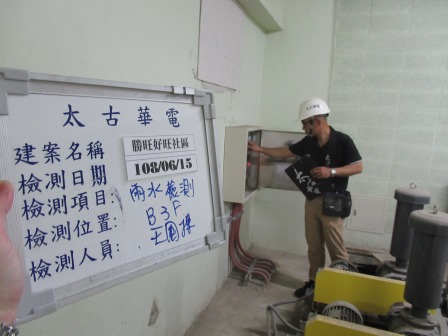 太古華電
建案名稱 勝旺好旺社區
檢測日期 108/06/15
檢測項目: 雨水藏測
檢測位置: B3F
檢測人員: